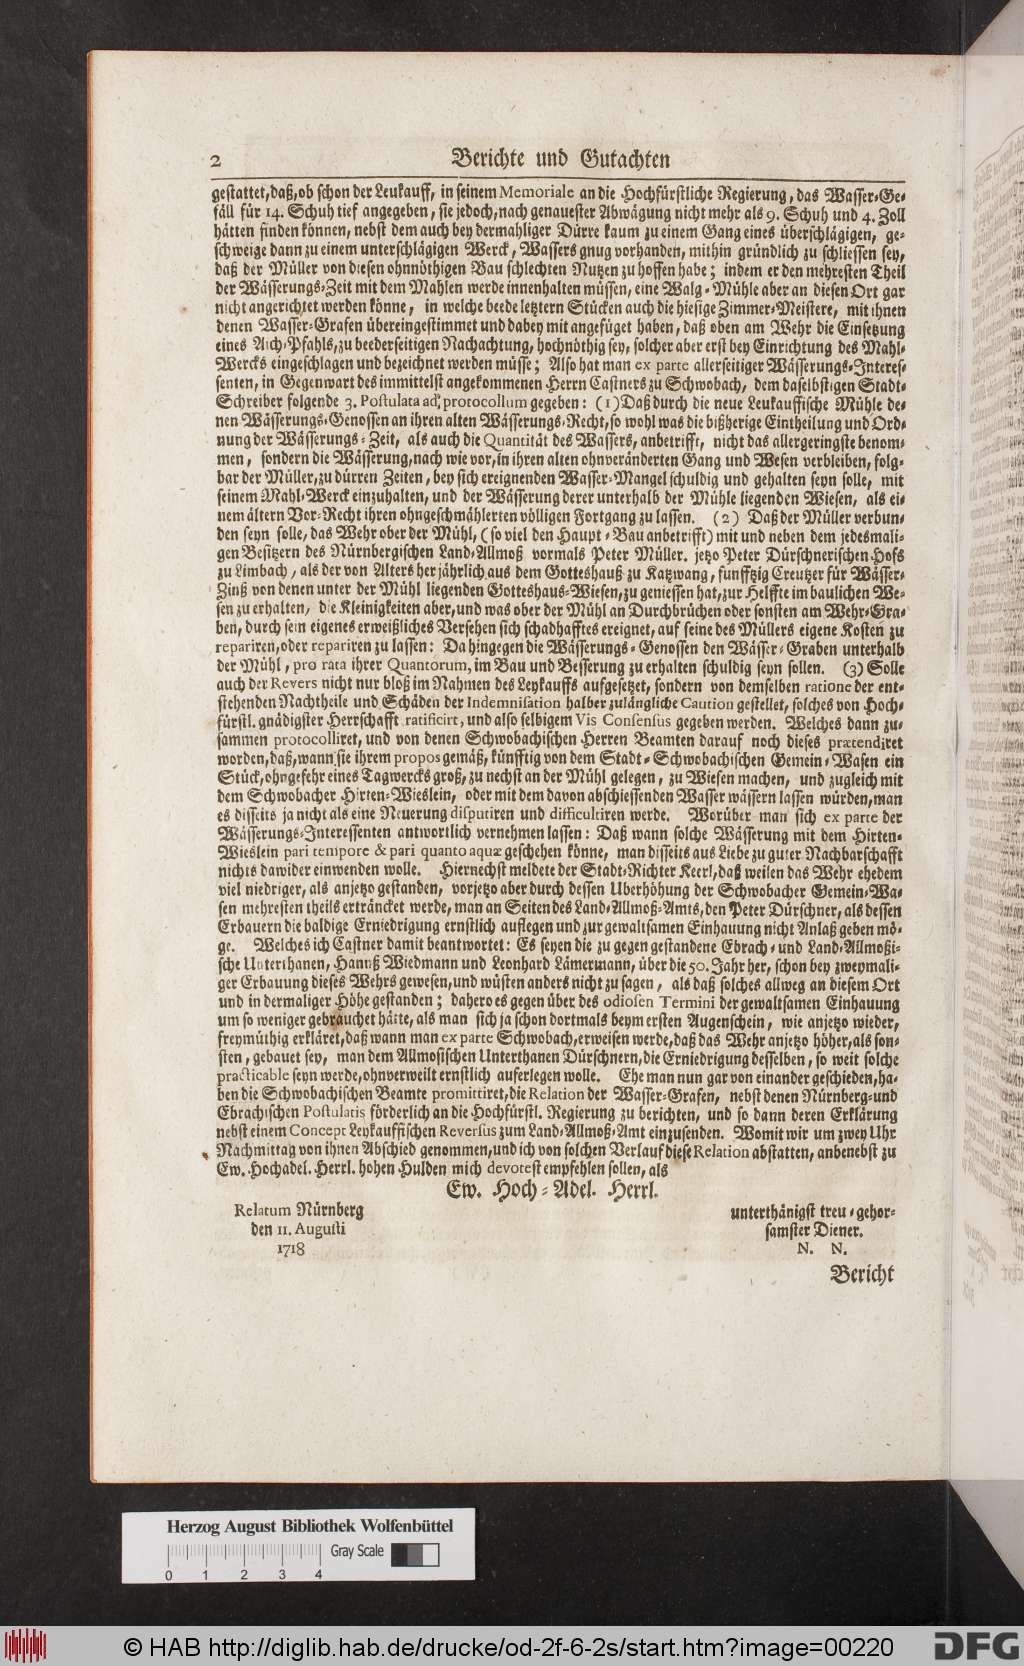 2 Berichte und Gutachten
gestattet, daß, ob schon der Leukauff, in seinem Memoriale an die Hochfürstliche Regierung, das Wasser-Ge-
fäll für 14. Schuh tief angegeben, sie jedoch, nach genauester Abwägung nicht mehr als 9. Schuh und 4. Zoll
hätten finden können, nebst dem auch bey dermahliger Dürre kaum zu einem Gang eines überschlägigen, ge-
schweige dann zu einem unterschlägigen Werck, Wassers gnug vorhanden, mithin gründlich zu schliessen sey,
daß der Müller von diesen ohnnöthigen Bau schlechten Nutzen zu hoffen habe; indem er den mehresten Theil
der Wässerungs-Zeit mit dem Mahlen werde innenhalten müssen, eine Walg-Mühle aber an diesen Ort gar
nicht angerichtet werden könne, in welche beede letztern Stücken auch die hiesige Zimmer-Meistere, mit ihnen
denen Wasser-Grafen übereingestimmet und dabey mit angefüget haben, daß oben am Wehr die Einsetzung
eines Aich-Pfahls, zu beederseitigen Nachachtung, hochnöthig sey, solcher aber erst bey Einrichtung des Mahl-
Wercks eingeschlagen und bezeichnet werden müsse; Also hat man ex parte allerseitiger Wässerungs-Interes-
senten, in Gegenwart des immittelst angekommenen Herrn Castners zu Schwobach, dem daselbstigen Stadt-
Schreiber folgende 3. Postulata ad protocollum gegeben: (1) Daß durch die neue Leukauffische Mühle de-
nen Wässerungs-Genossen an ihren alten Wässerungs-Recht, so wohl was die bißherige Eintheilung und Ord-
nung der Wässerungs-Zeit, als auch die Quantität des Wassers, anbetrifft, nicht das allergeringste benom-
men, sondern die Wässerung, nach wie vor, in ihren alten ohnveränderten Gang und Wesen verbleiben, folg-
bar der Müller, zu dürren Zeiten, bey sich ereignenden Wasser-Mangel schuldig und gehalten seyn solle, mit
seinem Mahl-Werck einzuhalten, und der Wässerung derer unterhalb der Mühle liegenden Wiesen, als ei-
nem ältern Vor-Recht ihren ohngeschmählerten völligen Fortgang zu lassen. (2) Daß der Müller verbun-
den seyn solle, das Wehr ober der Mühl, (so viel den Haupt-Bau anbetrifft) mit und neben dem jedesmali-
gen Besitzern des Nürnbergischen Land-Allmoß vormals Peter Müller. jetzo Peter Dürschnerischen Hofs
zu Limbach, als der von Alters her jährlich aus dem Gotteshauß zu Katzwang, funfftzig Creutzer für Wässer-
Zinß von denen unter der Mühl liegenden Gotteshaus-Wiesen, zu geniessen hat, zur Helffte im baulichen We-
sen zu erhalten, die Kleinigkeiten aber, und was ober der Mühl an Durchbrüchen oder sonsten am Wehr-Gra-
ben, durch sein eigenes erweißliches Versehen sich schadhafftes ereignet, auf seine des Müllers eigene Kosten zu
repariren, oder repariren zu lassen: Da hingegen die Wässerungs-Genossen den Wässer-Graben unterhalb
der Mühl, pro rata ihrer Quantorum, im Bau und Besserung zu erhalten schuldig seyn sollen. (3) Solle
auch der Revers nicht nur bloß im Nahmen des Leykauffs aufgesetzet, sondern von demselben ratione der ent-
stehenden Nachtheile und Schäden der Indemnisation halber zulängliche Caution gestellet, solches von Hoch-
fürstl. gnädigster Herrschafft ratificirt, und also selbigem Vis Consensus gegeben werden. Welches dann zu-
sammen protocolliret, und von denen Schwobachischen Herren Beamten darauf noch dieses prætendiret
worden, daß, wann sie ihrem propos gemäß, künfftig von dem Stadt-Schwobachischen Gemein-Wasen ein
Stück, ohngefehr eines Tagwercks groß, zu nechst an der Mühl gelegen, zu Wiesen machen, und zugleich mit
dem Schwobacher Hirten-Wieslein, oder mit dem davon abschiessenden Wasser wässern lassen würden, man
es disseits ja nicht als eine Neuerung disputiren und difficultiren werde. Worüber man sich ex parte der
Wässerungs-Interessenten antwortlich vernehmen lassen: Daß wann solche Wässerung mit dem Hirten-
Wieslein pari tempore & pari quanto aquæ geschehen könne, man disseits aus Liebe zu guter Nachbarschafft
nichts dawider einwenden wolle. Hiernechst meldete der Stadt-Richter Keerl, daß weilen das Wehr ehedem
viel niedriger, als anjetzo gestanden, vorjetzo aber durch dessen Uberhöhung der Schwobacher Gemein-Wa-
sen mehresten theils ertråncket werde, man an Seiten des Land-Allmoß-Amts, den Peter Dürschner, als dessen
Erbauern die baldige Erniedrigung ernstlich auflegen und zur gewaltsamen Einhauung nicht Anlaß geben mö-
ge. Welches ich Castner damit beantwortet: Es seyen die zu gegen gestandene Ebrach- und Land-Allmoßi-
sche Unterthanen, Hannß Wiedmann und Leonhard Lämermann, über die 50. Jahr her, schon bey zweymali-
ger Erbauung dieses Wehrs gewesen, und wüsten anders nicht zu sagen, als daß solches allweg an diesem Ort
und in dermaliger Höhe gestanden; dahero es gegen über des odiosen Termini der gewaltsamen Einhauung
um so weniger gebrauchet hätte, als man sich ja schon dortmals beym ersten Augenschein, wie anjetzo wieder,
freymüthig erkläret, daß wann man ex parte Schwobach, erweisen werde, daß das Wehr anjetzo höher, als son-
sten, gebauet sey, man dem Allmosischen Unterthanen Dürschnern, die Erniedrigung desselben, so weit solche
practicable seyn werde, ohnverweilt ernstlich auferlegen wolle. Ehe man nun gar von einander geschieden, ha-
ben die Schwobachischen Beamte promittiret, die Relation der Wasser-Grafen, nebst denen Nürnberg- und
Ebrachischen Postulatis förderlich an die Hochfürstl. Regierung zu berichten, und so dann deren Erklärung
nebst einem Concept Leykauffischen Reversus zum Land-Allmoß-Amt einzusenden. Womit wir um zwey Uhr
Nachmittag von ihnen Abschied genommen, und ich von solchen Verlauf diese Relation abstatten, anbenebst zu
Ew. Hochadel. Herrl. hohen Hulden mich devotest empfehlen sollen, als
Ew. Hoch-Adel. Herrl.
Relatum Nürnberg
den 11. Augusti
1718
unterthänigst treu-gehor-
samster Diener.
N. N.
Bericht
Herzog August Bibliothek Wolfenbüttel
Gray Scale
0 1 2 3 4
© HAB http://diglib.hab.de/drucke/od-2f-6-2s/start.htm?image=00220
DFG